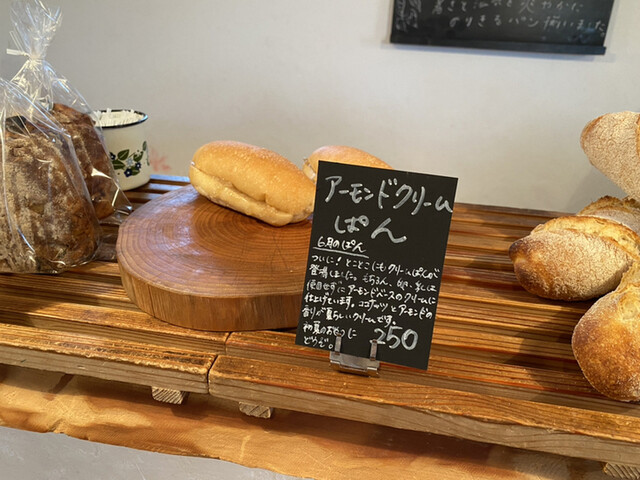 暑さと湿気を爽やかに
のりきるパン揃いました
アーモンドクリーム
ぱん
6月のぱん
ついに！とことこにもクリームぱんが
登場しました。もちろん、卵、乳は
使用せずにアーモンドベースのクリームに
仕上げています。ココナッツとアーモンドの
香りが夏らしいクリームです。
初夏のおやつに
どうぞ。
250